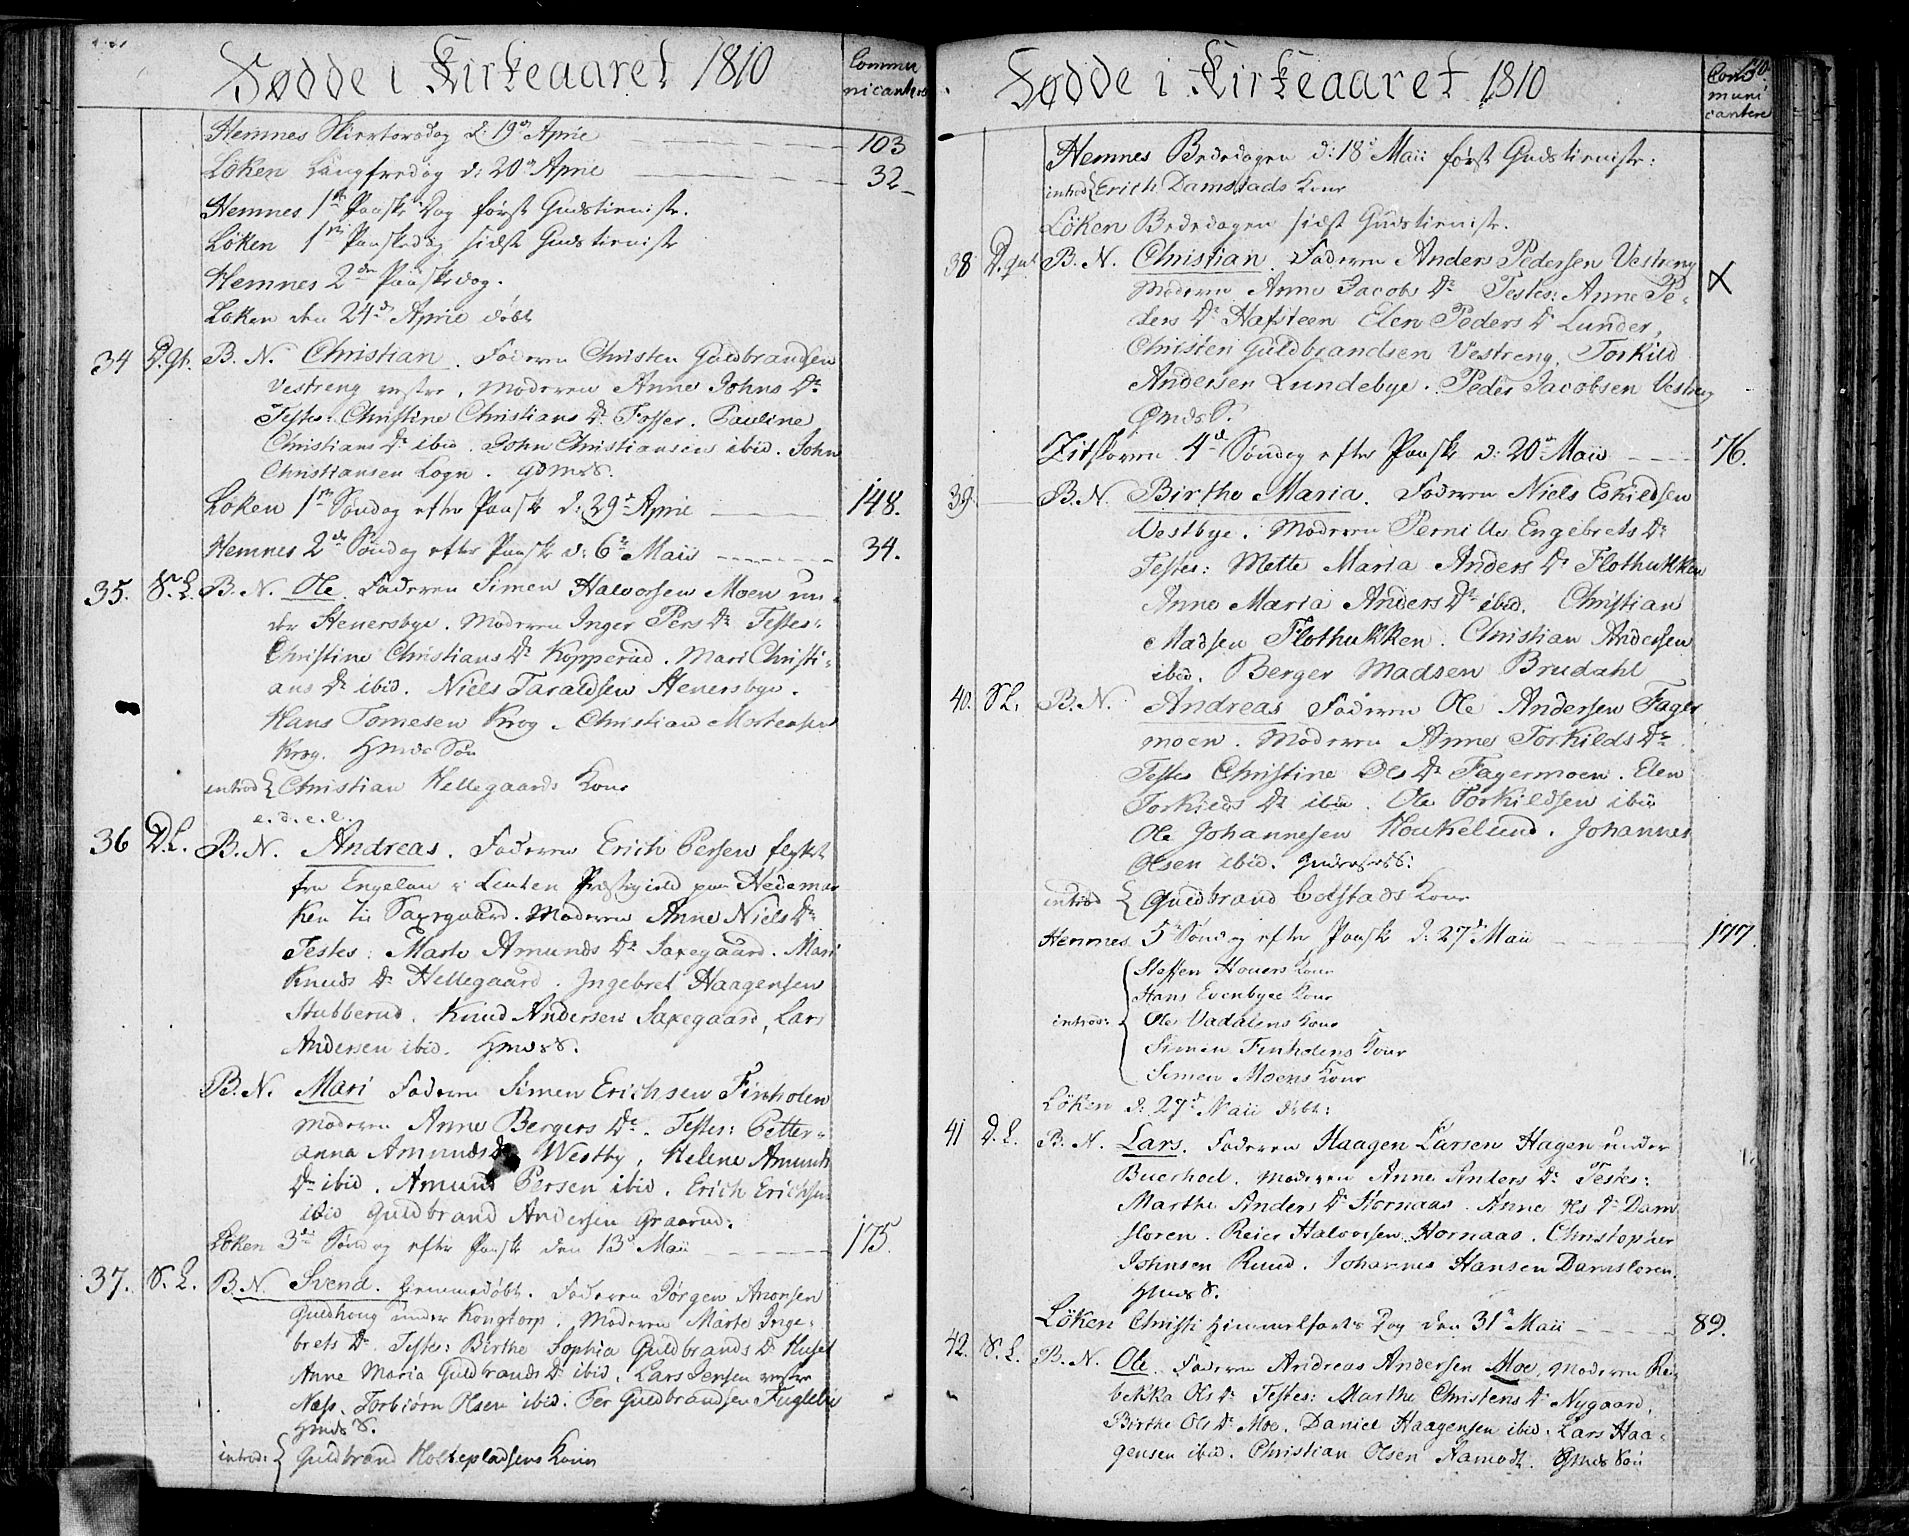 Fødde i Kirkeaaret 1810
Commu
nicantere
Hemnes Skiertorsdag d: 19de April 103
Løken Langfredag d: 20de April 32
Hemnes 1ste Paaske Dag først Gudstieniste.
Løken 1ste Paaskedag sidst Gudstieniste
Hemnes 2den Paaskedag.
Løken den 24de April døbt
34 D.gt. B. N. Christian. Faderen Christen Guldbrandsen
Vestreng vestre, Moderen Anne Johns Dr
Testes: Christine Christians Dr Fosser. Pauline
Christians Dr ibid. John Christiansen ibid. John
Christiansen Sogn. GdmsS.
Løken 1ste Søndag efter Paaske d: 29de April 148.
Hemnes 2den Søndag efter Paaske d: 6te Maii 34.
35. S. L. B. N. Ole. Faderen Simen Halvorsen Moen un-
der Henersbye. Moderen Inger Pers Dr Testes:
Christine Christians Dr Kopperud. Mari Christi-
ans Dr ibid. Niels Taraldsen Henersbye.
Hans Tomesen Krog. Christian Mortensen
Krog. Hmds Søn
introd { Christian Hellegaards Kone
e. d. e. l.
36 D.L. B. N. Andreas. Faderen Erich Persen flyttet
fra Engelau i Leuten Præstegield paa Hedemar
ken til Saxegaard. Moderen Anne Niels Dr
Testes: Marte Amunds Dr Saxegaard. Mari
Knuds Dr Hellegaard. Ingebret Haagensen
Stubberud. Knud Andersen Saxegaard, Lars
Andersen ibid. HmdsS.
B. N. Mari Faderen Simen Erichsen Finholen
Moderen Anne Bergers Dr. Testes: Petter-
anna Amunds Dr Westby, Helene Amunds
Dr ibid. Amund Persen ibid. Erich Erichsen
ibid Guldbrand Andersen Graarud.
Løken 3die Søndag efter Paaske den 13de Maii 175.
37. S. L. B. N. Svend. Hiemmedøbt. Faderen Jørgen Andersen
Guldhoug under Kongtorp. Moderen Marte Inge-
brets Dr Testes: Birthe Sophia Guldbrands Dr Huset
Anne Maria Guldbrands Dr ibid. Lars Jensen vestre
Næss. Torbiørn Olsen ibid. Per Guldbrandsen Fuglebye
Hmds S.
introd: { Guldbrand Holtepladsens Kone
Fødde i Kirkeaaret 1810
Com
muni
cantere
Hemnes Bededagen d: 18de Maii først Gudstieniste:
introd { Erich Damstads Kone
Løken Bededagen sidst Gudstieniste.
38 D.gt B. N. Christian. Faderen Anders Pedersen Vestreng
Moderen Anne Jacobs Dr Testes: Anne Pe-
ders Dr Hafsteen Elen Peders Dr Lunder,
Christen Guldbrandsen Vestreng, Torkild
Andersen Lundebye. Peder Jacobsen Vestreng
GmdsS.
Zitskoven 4de Søndag efter Paaske d: 20de Maii 76.
39. B. N. Birthe Maria. Faderen Niels Eskildsen
Vestbye. Moderen Pernille Engebrets Dr
Testes: Mette Maria Anders Dr Flothukken
Anne Maria Anders Dr ibid. Christian
Madsen Flothukken. Christian Andersen
ibid. Berger Madsen Brudahl
40. S L. B. N. Andreas Faderen Ole Andersen Fager
moen. Moderen Anne Torkilds Dr
Testes Christine Ols Dr Fagermoen. Elen
Torkilds Dr ibid. Ole Torkildsen ibid
Ole Johannesen Houkelund. Johannes
Olsen ibid.
introd { Guldbrand Colstads Kone
Hemnes 5te Søndag efter Paaske d: 27de Maii 177.
Steffen Houers Kone
Hans Evenbyes Kone
introd: { Ole Vadalens Kone
Simen Finholens Kone
Simen Moens Kone
Løken d: 27de Maii døbt:
41 D. L. B. N. Lars. Faderen Haagen Larsen Hagen under
Buerhoel. Moderen Anne Anders Dr Testes:
Marthe Anders Dr Hornaas. Anne Ols Dr Dam
sloren. Reier Halvorsen Hornaas. Christopher
Johnsen Ruud. Johannes Hansen Damsloren.
Hmds S.
Løken Christi Himmelfarts Dag den 31te Maii 89.
42. S. L. B. N. Ole. Faderen Andreas Andersen Moe, Moderen Re-
bekka Ols Dr Testes: Marthe Christens Dr Nygaard,
Birthe Ols Dr Moe. Daniel Haagensen ibid. Lars Haa-
gensen ibid. Christian Olsen Aamodt. Gmds Søn